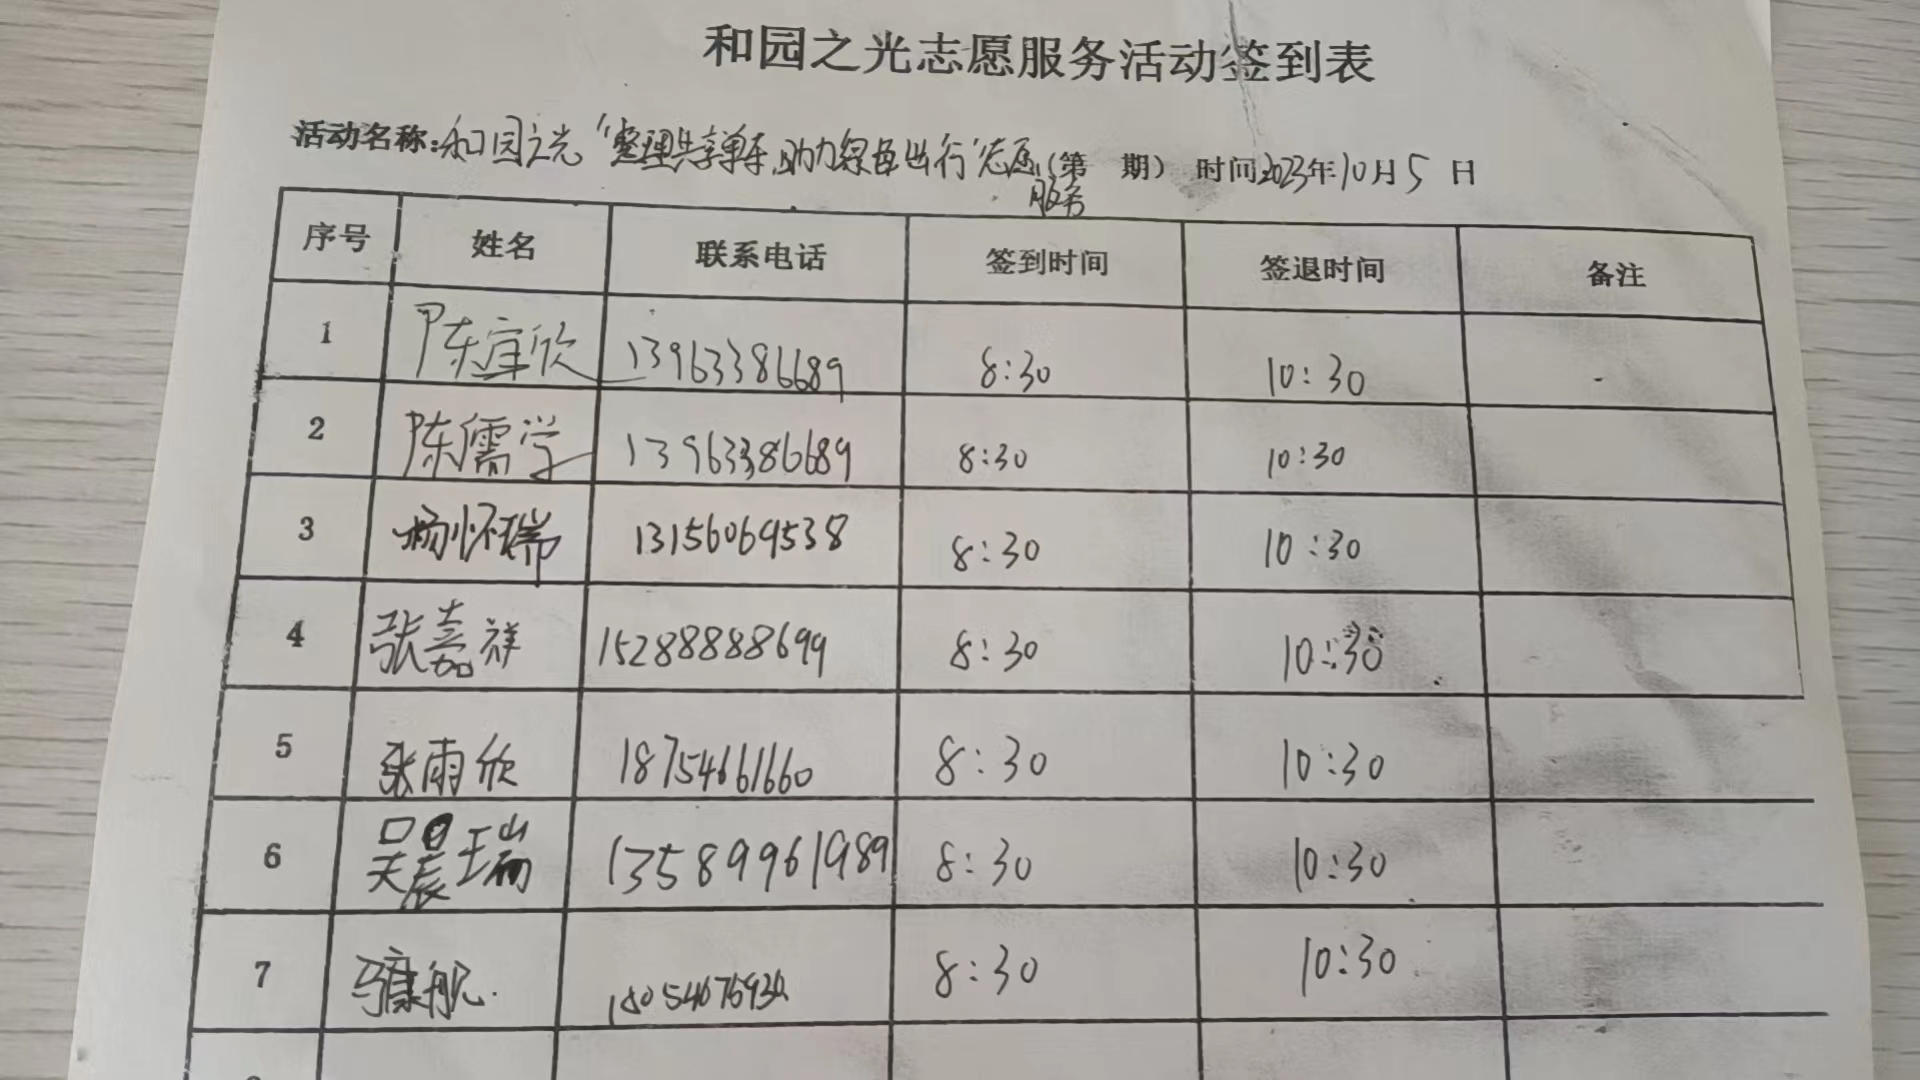 和园之光志愿服务活动签到表
活动名称:和园之光“整理共享单车,助力绿色出行”志愿(第 期) 时间2023年10月5日
服务
序号 姓名 联系电话 签到时间 签退时间 备注
1 陈宜欣 13963386689 8:30 10:30
2 陈儒学 13963386689 8:30 10:30
3 杨怀瑞 13156069538 8:30 10:30
4 张嘉祥 15288888699 8:30 10:30
5 张雨欣 18754661660 8:30 10:30
6 吴晨瑞 13589961989 8:30 10:30
7 8:30 10:30